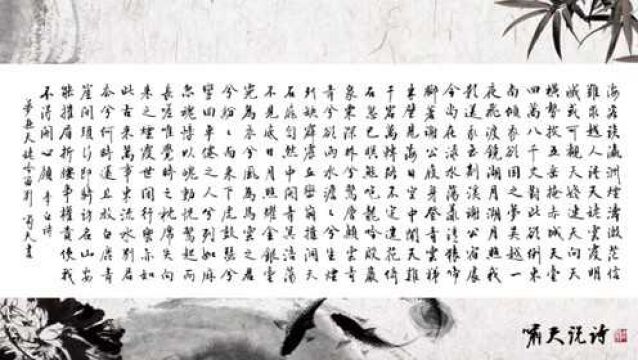 海客談瀛洲煙濤微茫信
難求越人語天姥雲霞明
滅或可覩天姥連天向天
橫勢拔五岳掩赤城天臺
四萬八千丈對此欲倒東
南傾我欲因之夢吳越一
夜飛渡鏡湖月湖月照我
影送我至剡溪謝公宿處
今尚在渌水蕩漾清猿啼
腳著謝公屐身登青雲梯
半壁見海日空中聞天雞
千岩萬轉路不定迷花倚
石忽已暝熊咆龍吟殷巖
泉栗深林兮驚層巔雲青
青兮欲雨水澹澹兮生煙
列缺霹靂丘巒崩摧洞天
石扉訇然中開青冥浩蕩
不見底日月照耀金銀臺
霓為衣兮風為馬雲之君
兮紛紛而來下虎鼓瑟兮
鸞回車僊之人兮列如麻
忽魂悸以魄動怳驚起而
長嗟惟覺時之枕席失向
來之煙霞世間行樂亦如
此古來萬事東流水別君
去兮何時還且放白鹿青
崖間須行即騎訪名山安
能摧眉折腰事權貴使我
不得開心顏 李白詩
夢遊天姥吟留別 嘯天書
嘯天說詩